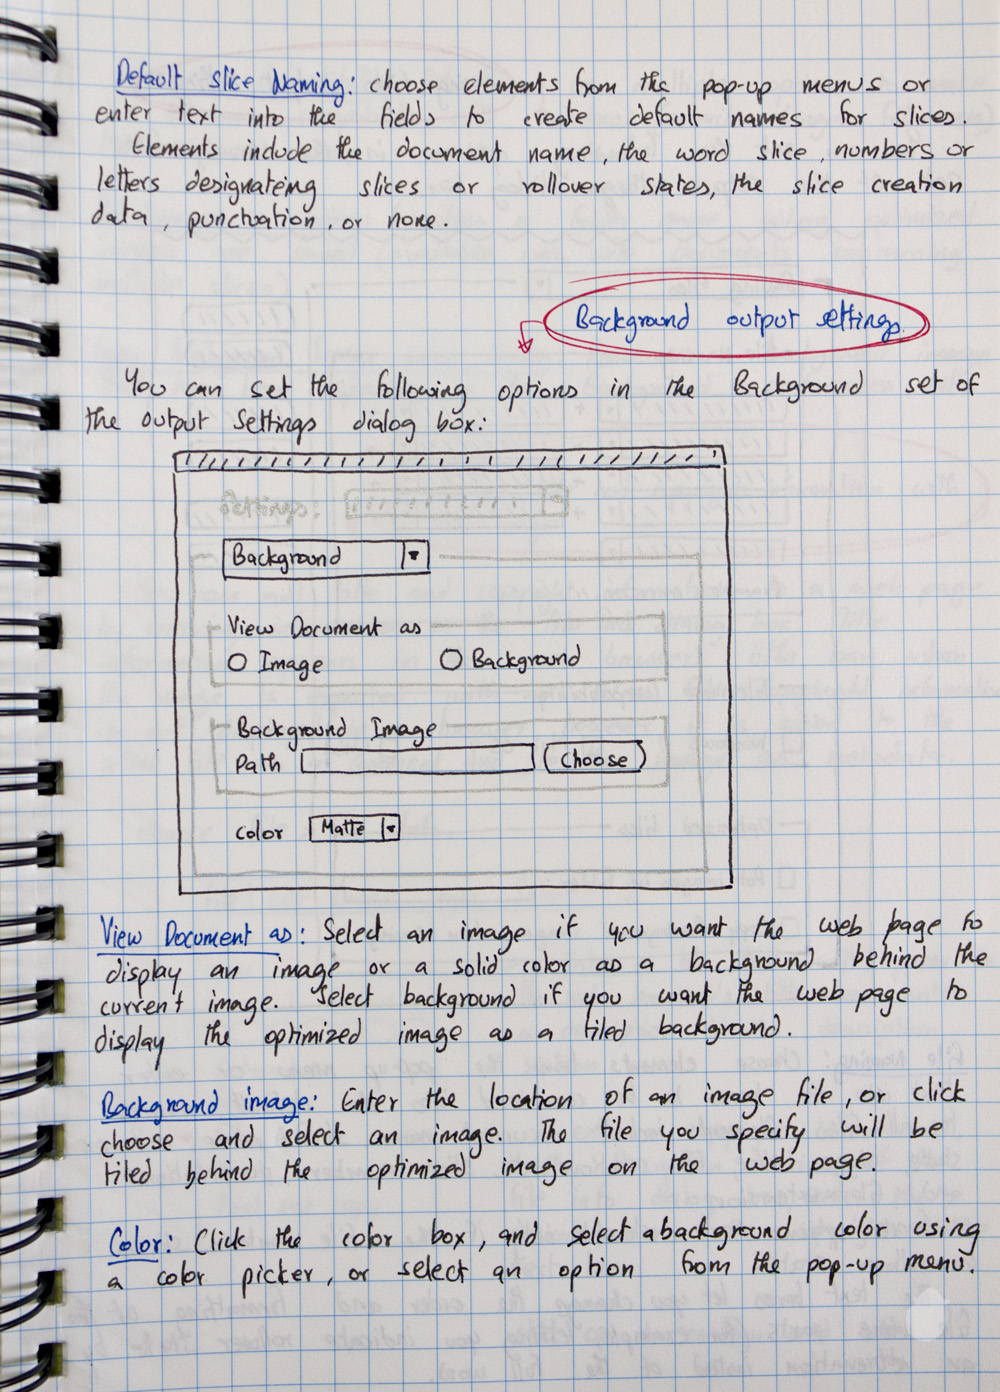 Default slice Naming: choose elements from the pop-up menus or
enter text into the fields to create default names for slices.
Elements include the document name, the word slice, numbers or
letters designateing slices or rollover states, the slice creation
data, punctuation, or none.
Background output settings.
You can set the following options in the Background set of
the output settings dialog box:
Settings:
Background
View Document as
Image Background
Background Image
Path Choose
Color Matte
View Document as: Select an image if you want the web page to
display an image or a solid color as a background behind the
current image. Select background if you want the web page to
display the optimized image as a tiled background.
Background image: Enter the location of an image file, or click
choose and select an image. The file you specify will be
tiled behind the optimized image on the web page.
Color: Click the color box, and select a background color using
a color picker, or select an option from the pop-up menu.